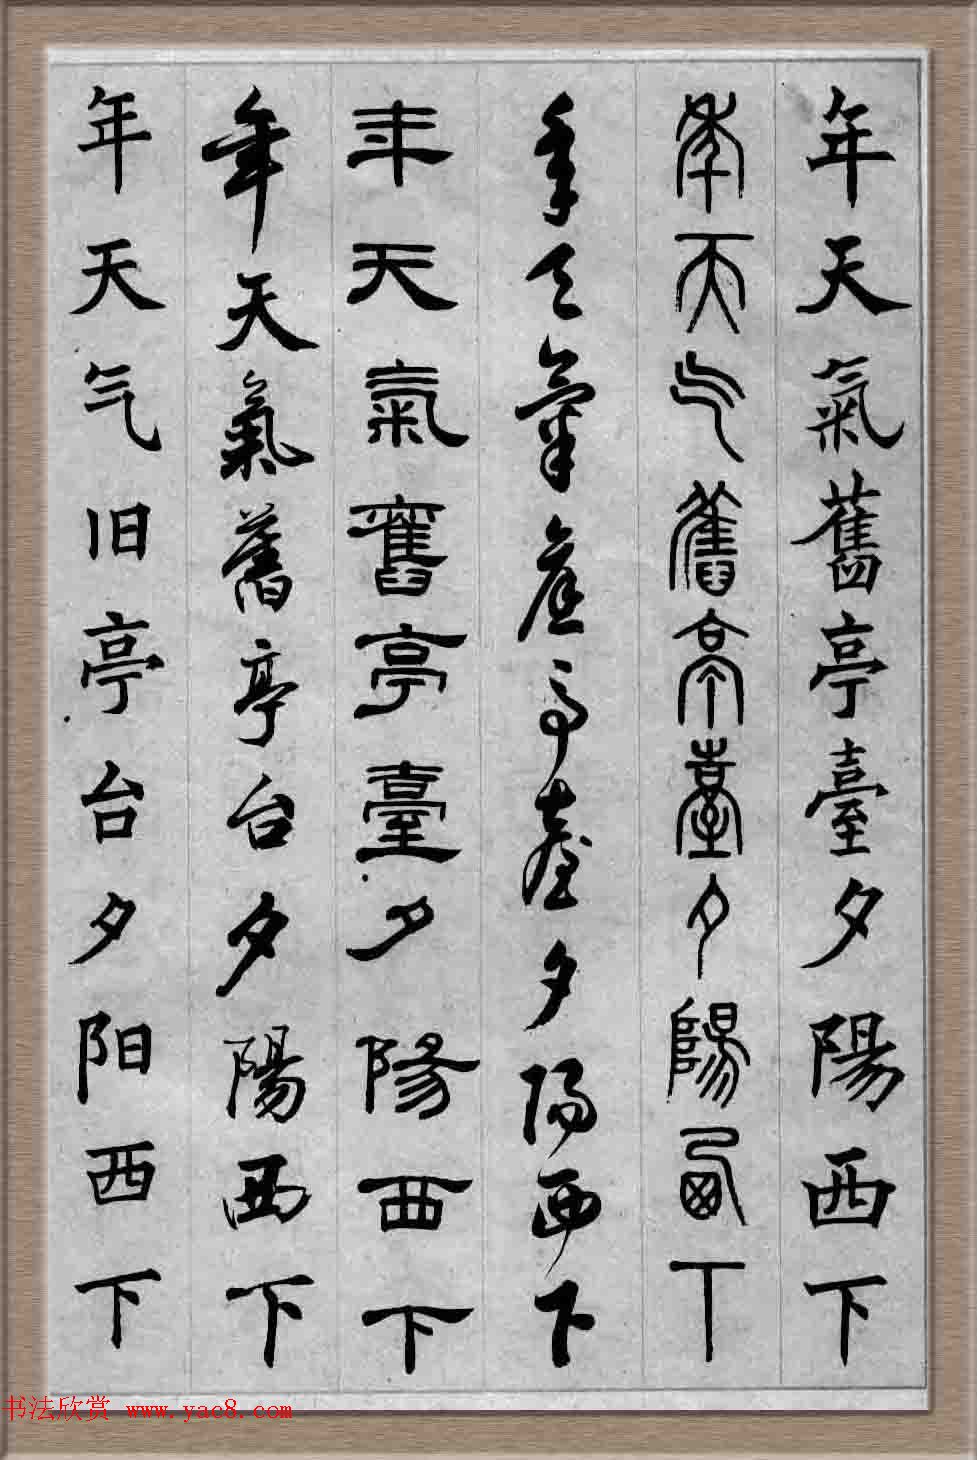 年天氣舊亭臺夕陽西下
年天气舊亭臺夕陽西下
年天氣舊亭臺夕陽西下
年天氣舊亭臺夕陽西下
年天氣舊亭台夕陽西下
年天气旧亭台夕阳西下
书法欣赏 www.yac8.com